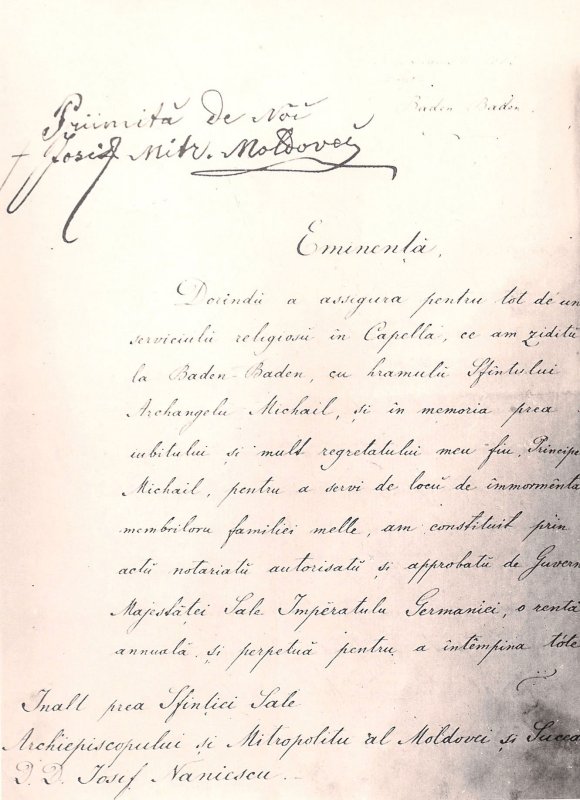 Baden Baden
Priimită de Noi
† Iosif Mitr. Moldovei
Eminență,
Dorindŭ a assigura pentru tot de un
serviciulŭ religiosŭ în Capella, ce am ziditŭ
la Baden-Baden, cu hramulŭ Sfîntului
Archangelu Michail, și în memoria prea
iubitului și mult regretatului meu fiu, Principe
Michail, pentru a servi de locŭ de immormênta
membriloru familiei melle, am constituit prin
actŭ notariatŭ autorisatŭ și approbatŭ de Guvern
Majestăței Sale Impĕratulu Germaniei, o rentă
annuală și perpetuă pentru a întêmpina tóte
Inalt prea Sfinției Sale
Archiepiscopului și Mitropolitu al Moldovei și Sucea
D. D. Iosef Naniescu